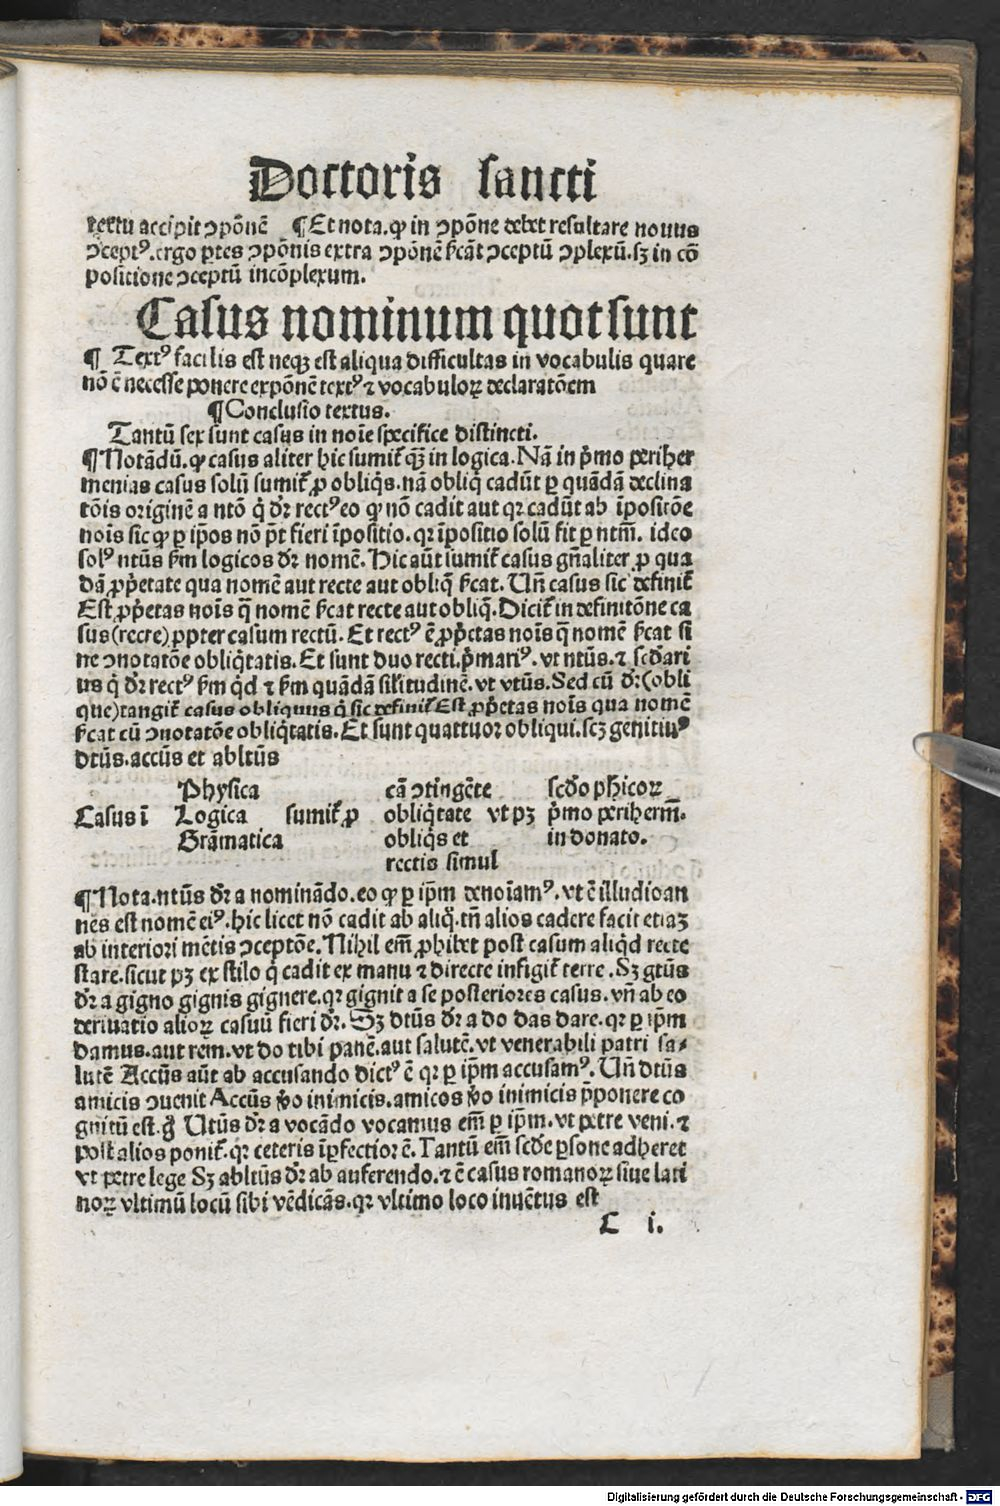 Doctoris sancti
textu accipit ꝯpōnē ¶ Et nota. ꝙ in ꝯpōne debet resultare nouus
ꝯceptꝰ. ergo ꝑtes ꝯpōnis extra ꝯpōnē ſcāt ꝯceptū ꝯplexū. sꝫ in cō
positione ꝯceptū incōplexum.
Casus nominum quot sunt
¶ Textꝰ facilis est neqꝫ est aliqua difficultas in vocabulis quare
nō ē necesse ponere expōnē textꝰ ⁊ vocabuloꝝ declaratōem
¶ Conclusio textus.
Tantū sex sunt casus in noīe specifice distincti.
¶ Notādū. ꝙ casus aliter hic sumiť qꝫ̄ in logica. Nā in p̄mo periher
menias casus solū sumiť ꝓ obliq̄s. nā obliq̄ cadūt ꝑ quādā declina
tōis originē a ntō q̄ dr̄ rectꝰ eo ꝙ nō cadit aut qꝛ cadūt ab īpositōe
noīs sic ꝙ ꝑ ip̄os nō p̄t fieri īpositio. qꝛ īpositio solū fit ꝑ ntm̄. ideo
solꝰ ntūs ẜm logicos dr̄ nomē. Hic aūt sumiť casus gn̄aliter ꝓ qua
dā ꝓp̄etate qua nomē aut recte aut obliq̄ ſcat. Un̄ casus sic definiť
Est ꝓp̄etas noīs q̄ nomē ſcat recte aut obliq̄. Diciť in definitōne ca
sus (recte) ꝓpter casum rectū. Et rectꝰ ē ꝓp̄etas noīs q̄ nomē ſcat si
ne ꝯnotatōe obliq̄tatis. Et sunt duo recti. p̄mariꝰ. vt ntūs. ⁊ scd̄ari
us q̄ dr̄ rectꝰ ẜm q̄d ⁊ ẜm quādā sil̄itudinē. vt vtūs. Sed cū dr̄ (obli
que) tangiť casus obliquus q̄ sic definiť Est ꝓp̄etas noīs qua nomē
ſcat cū ꝯnotatōe obliq̄tatis. Et sunt quattuor obliqui. scꝫ genitiuꝰ
dtūs. accūs et abltūs
Physica cā ꝯtingēte scd̄o phicoꝝ
Casus ī Logica sumiť ꝓ obliq̄tate vt pꝫ p̄mo periherm̄.
Grāmatica obliq̄s et in donato.
rectis simul
¶ Nota. ntūs dr̄ a nominādo. eo ꝙ ꝑ ip̄m denoīamꝰ. vt ē illud ioan
nes est nomē eiꝰ. hic licet nō cadit ab aliq̄. tn̄ alios cadere facit etiaꝫ
ab interiori mētis ꝯceptōe. Nihil em̄ ꝓhibet post casum aliq̄d recte
stare. sicut pꝫ ex stilo q̄ cadit ex manu ⁊ directe infigiť terre. Sꝫ gtūs
dr̄ a gigno gignis gignere. qꝛ gignit a se posteriores casus. vn̄ ab eo
deriuatio alioꝝ casuū fieri dr̄. Sꝫ dtūs dr̄ a do das dare. qꝛ ꝑ ip̄m
damus. aut rem. vt do tibi panē. aut salutē. vt venerabili patri sa⸗
lutē Accūs aūt ab accusando dictꝰ ē qꝛ ꝑ ip̄m accusamꝰ. Un̄ dtūs
amicis ꝯuenit Accūs ꝟo inimicis. amicos ꝟo inimicis p̄ponere co
gnitū est. Utūs dr̄ a vocādo vocamus em̄ ꝑ ip̄m. vt petre veni. ⁊
post alios poniť. qꝛ ceteris īꝑfectior ē. Tantū em̄ scd̄e ꝑsone adheret
vt petre lege Sꝫ abltūs dr̄ ab auferendo. ⁊ ē casus romanoꝝ siue lati
noꝝ vltimū locū sibi vēdicās. qꝛ vltimo loco inuētus est
C i.
Digitalisierung gefördert durch die Deutsche Forschungsgemeinschaft - DFG